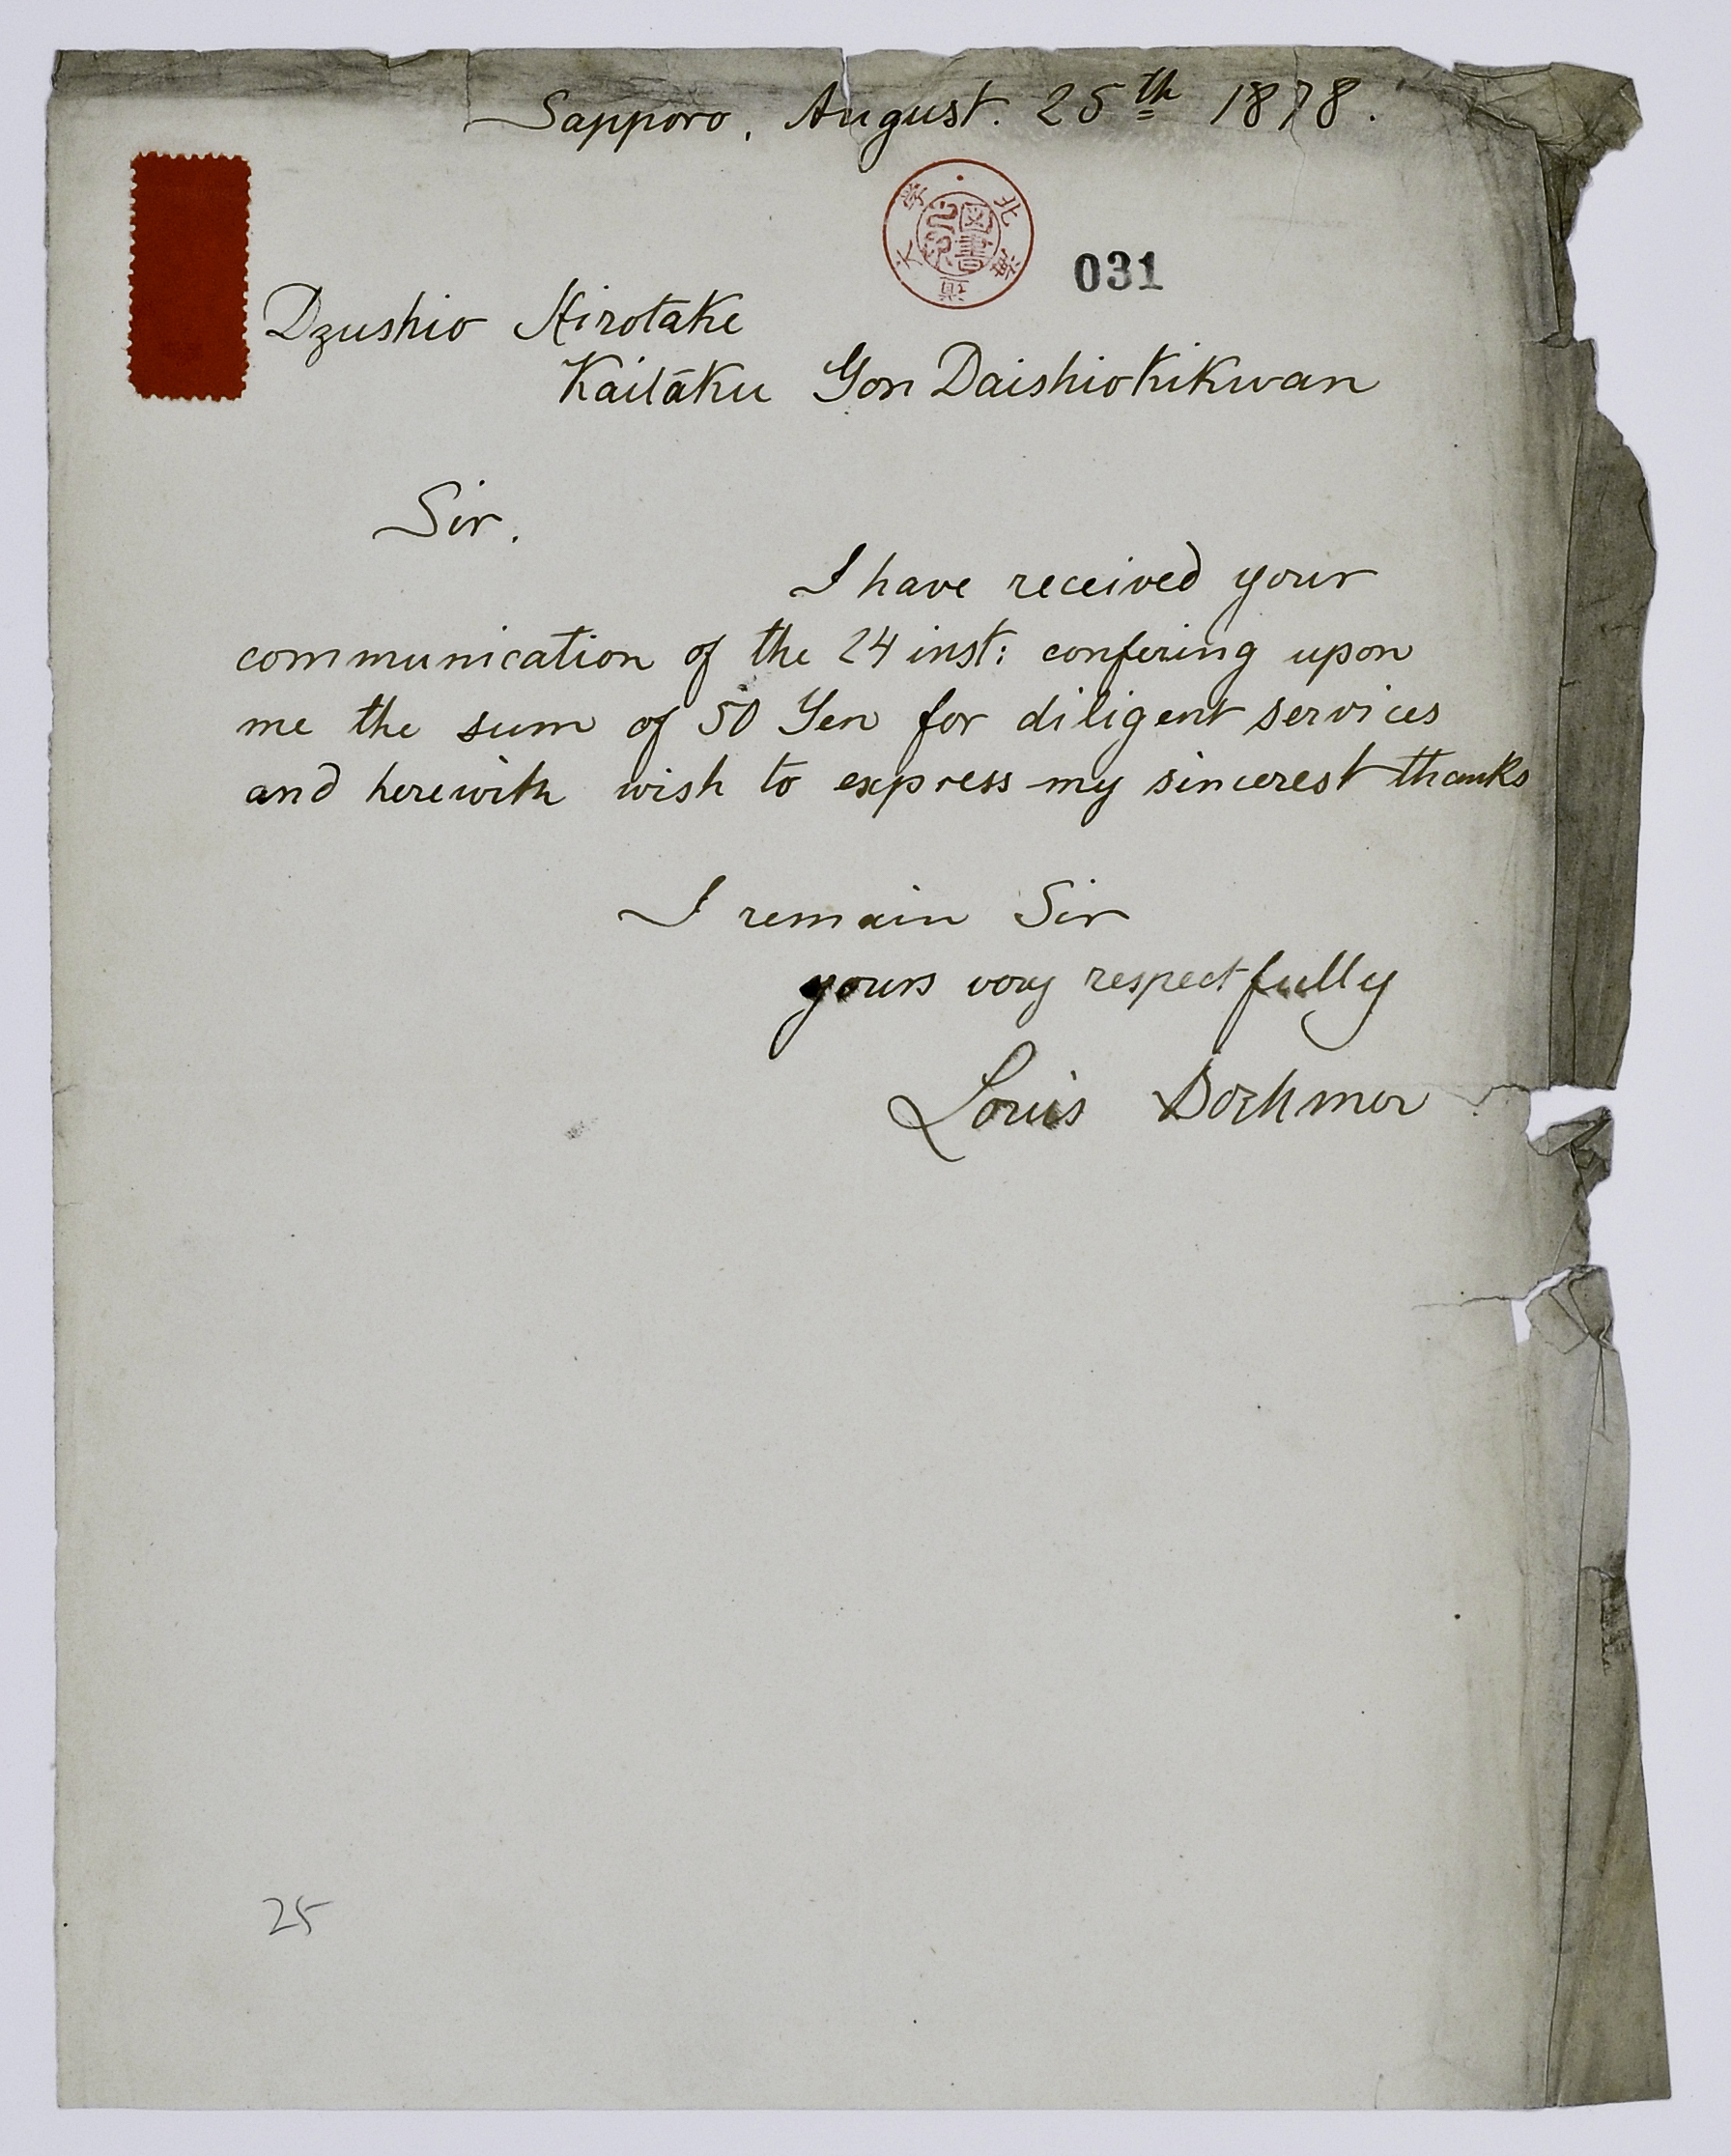 Sapporo, August. 25th 1878.
北海道大学
図書之印
031
Dzushio Hirotake
Kaitaku Gon Daishiokikwan
Sir.
I have received your
communication of the 24 inst: confering upon
me the sum of 50 Yen for diligent services
and herewith wish to express my sincerest thanks
I remain Sir
yours very respectfully
Louis Boehmer
25